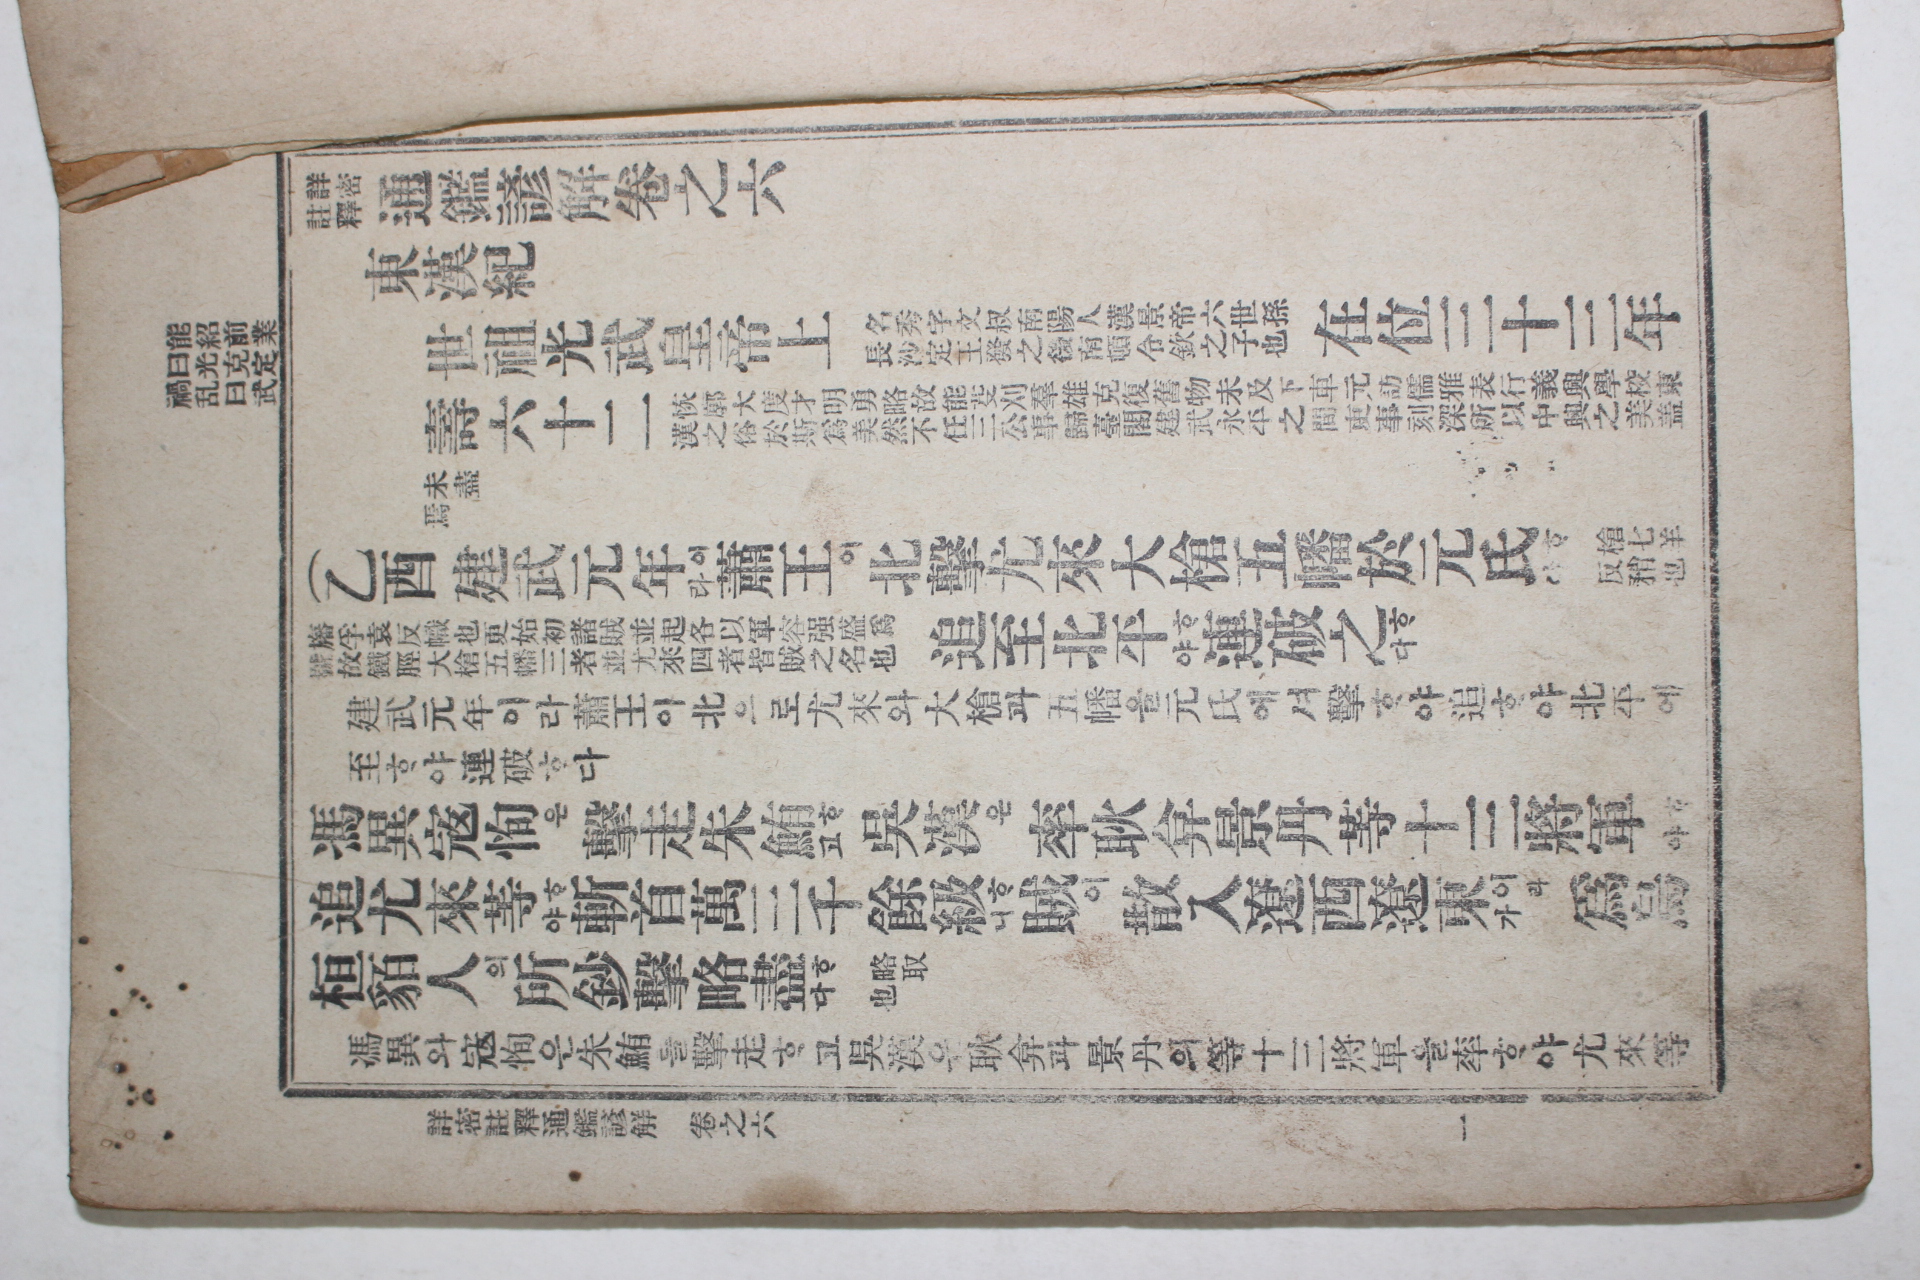 能紹前業
曰光克定
禍乱曰武
詳密註釋 通鑑諺解卷之六
東漢紀
世祖光武皇帝上 名秀字文叔南陽人漢景帝六世孫長沙定王發之後南頓令欽之子也 在位三十三年
壽六十二 恢廓大度才明勇略故能芟刈羣雄克復舊物未及下車元訪儒雅表行義興學校東漢之俗於斯爲美然不任三公事歸臺閣建武永平之間吏事刻深所以中興之美盖
未盡焉
(乙酉 建武元年이라蕭王이北擊尤來大槍五幡於元氏ᄒᆞ야 槍七羊反矟也
旛孚袁反幟也更始初諸賊並起各以軍容强盛爲號故鐵脛大槍五幡三者並尤來四者皆賊之名也 追至北平ᄒᆞ야連破之ᄒᆞ다
建武元年이라蕭王이北으로尤來와大槍과五幡을元氏에셔擊ᄒᆞ야追ᄒᆞ야北平에
至ᄒᆞ야連破ᄒᆞ다
馮異寇恂은 擊走朱鮪ᄒᆞ고 吳漢은 率耿弇景丹等十三將軍ᄒᆞ야
追尤來等ᄒᆞ야斬首萬三千餘級ᄒᆞ니賊이散入遼西遼東이라가 爲烏
桓貊人의所鈔擊略盡ᄒᆞ다 略取也
馮異와寇恂은朱鮪를擊走ᄒᆞ고吳漢은耿弇과景丹의等十三將軍을率ᄒᆞ야尤來等
詳密註釋通鑑諺解 卷之六 一